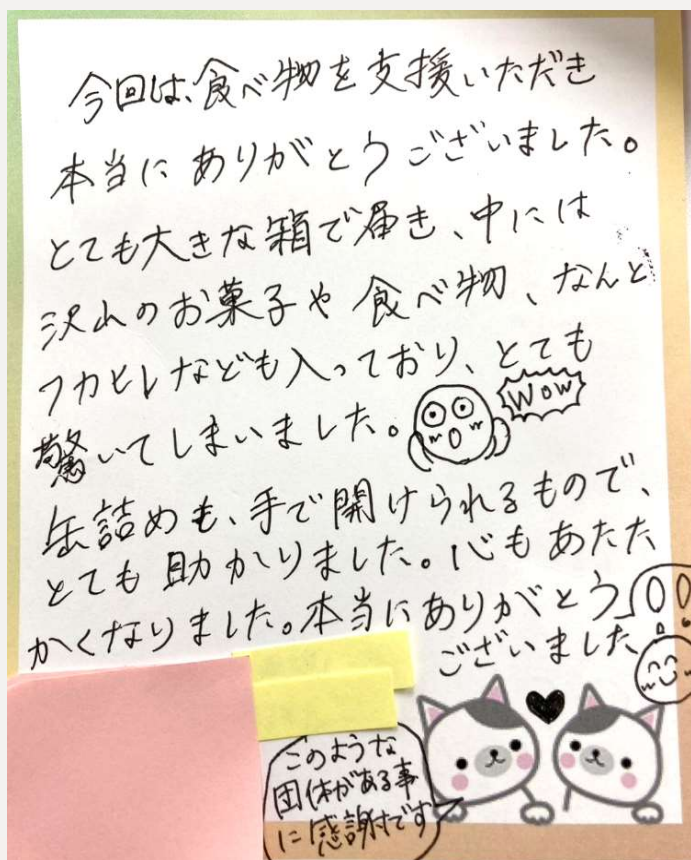 今回は、食べ物を支援いただき
本当にありがとうございました。
とても大きな箱で届き、中には
沢山のお菓子や食べ物、なんと
フカヒレなども入っており、とても
驚いてしまいました。
WOW
缶詰めも、手で開けられるもので、
とても助かりました。心もあたた
かくなりました。本当にありがとう
ございました!!
このような
団体がある事
に感謝です